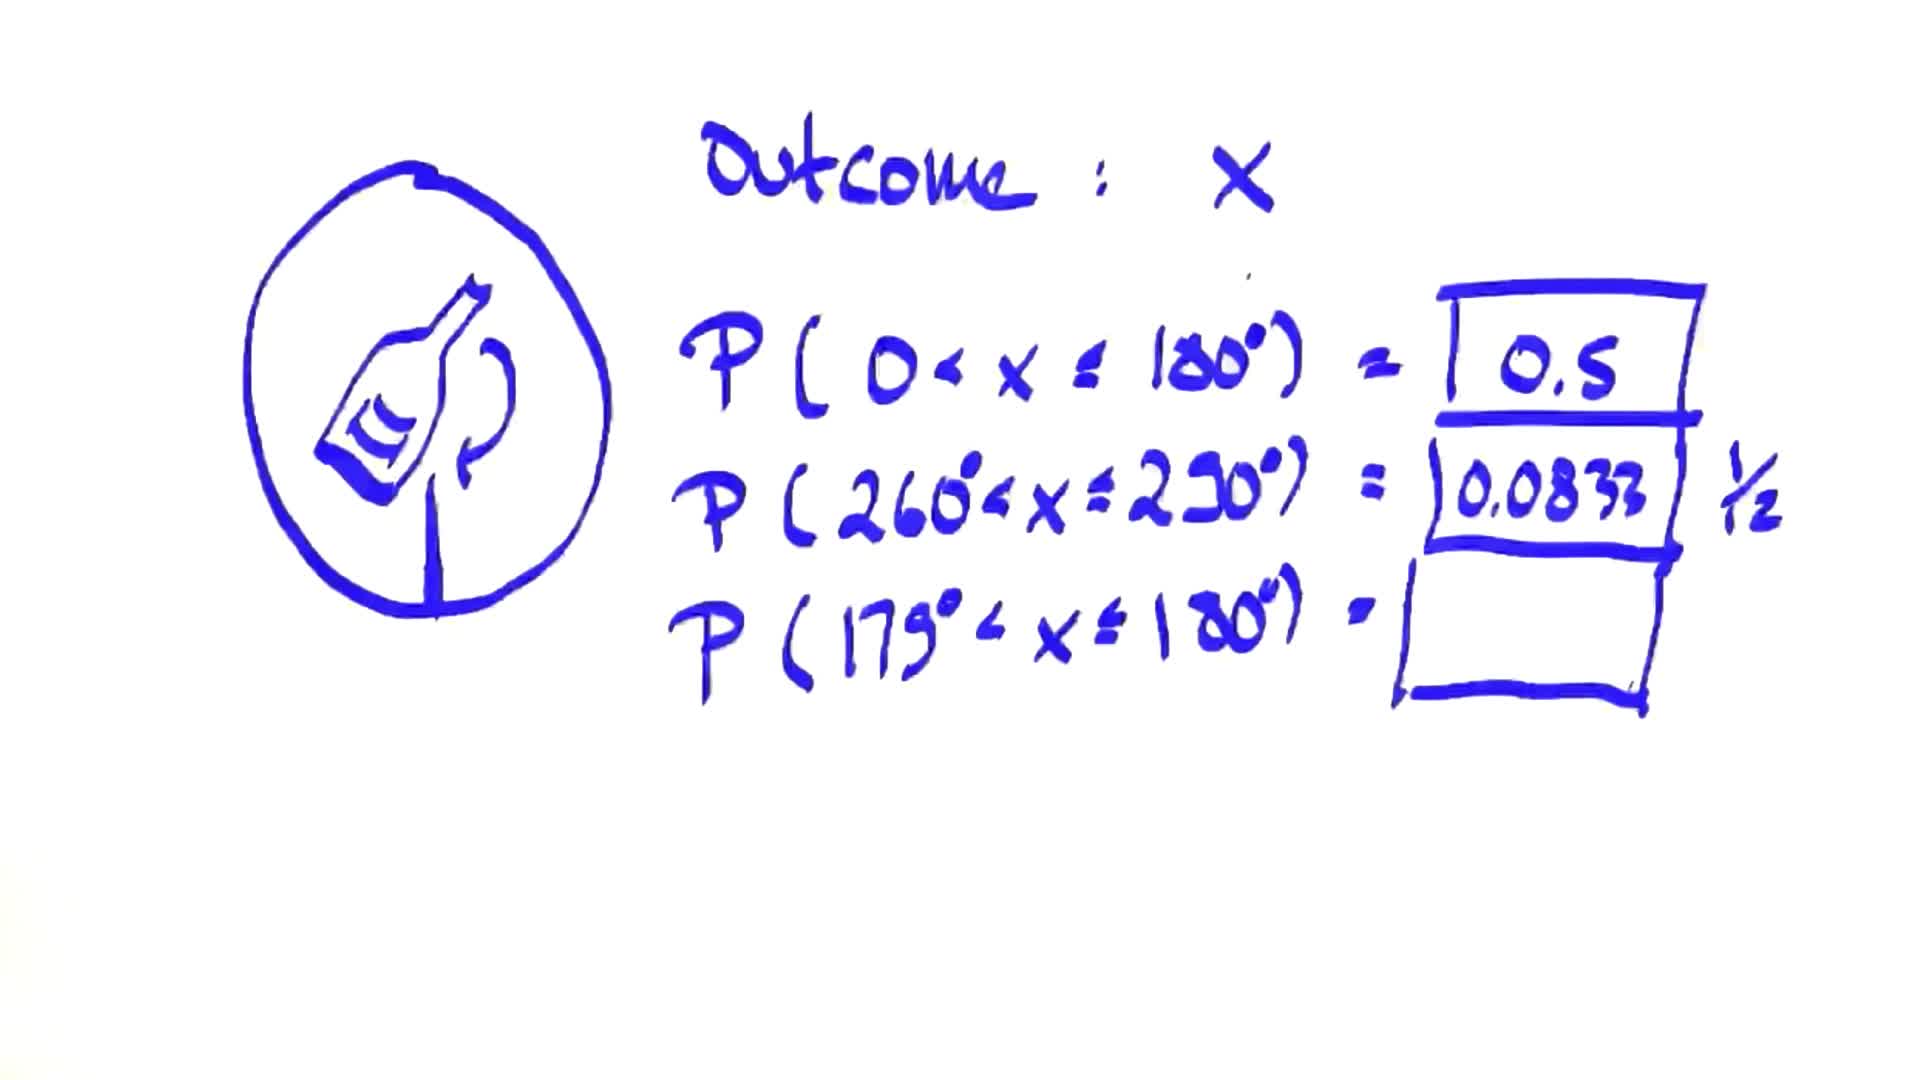 Outcome : X
P ( 0 < x ≤ 180° ) = 0.5
P ( 260° < x ≤ 290° ) = 0.0833 1/2
P ( 179° < x ≤ 180° ) =